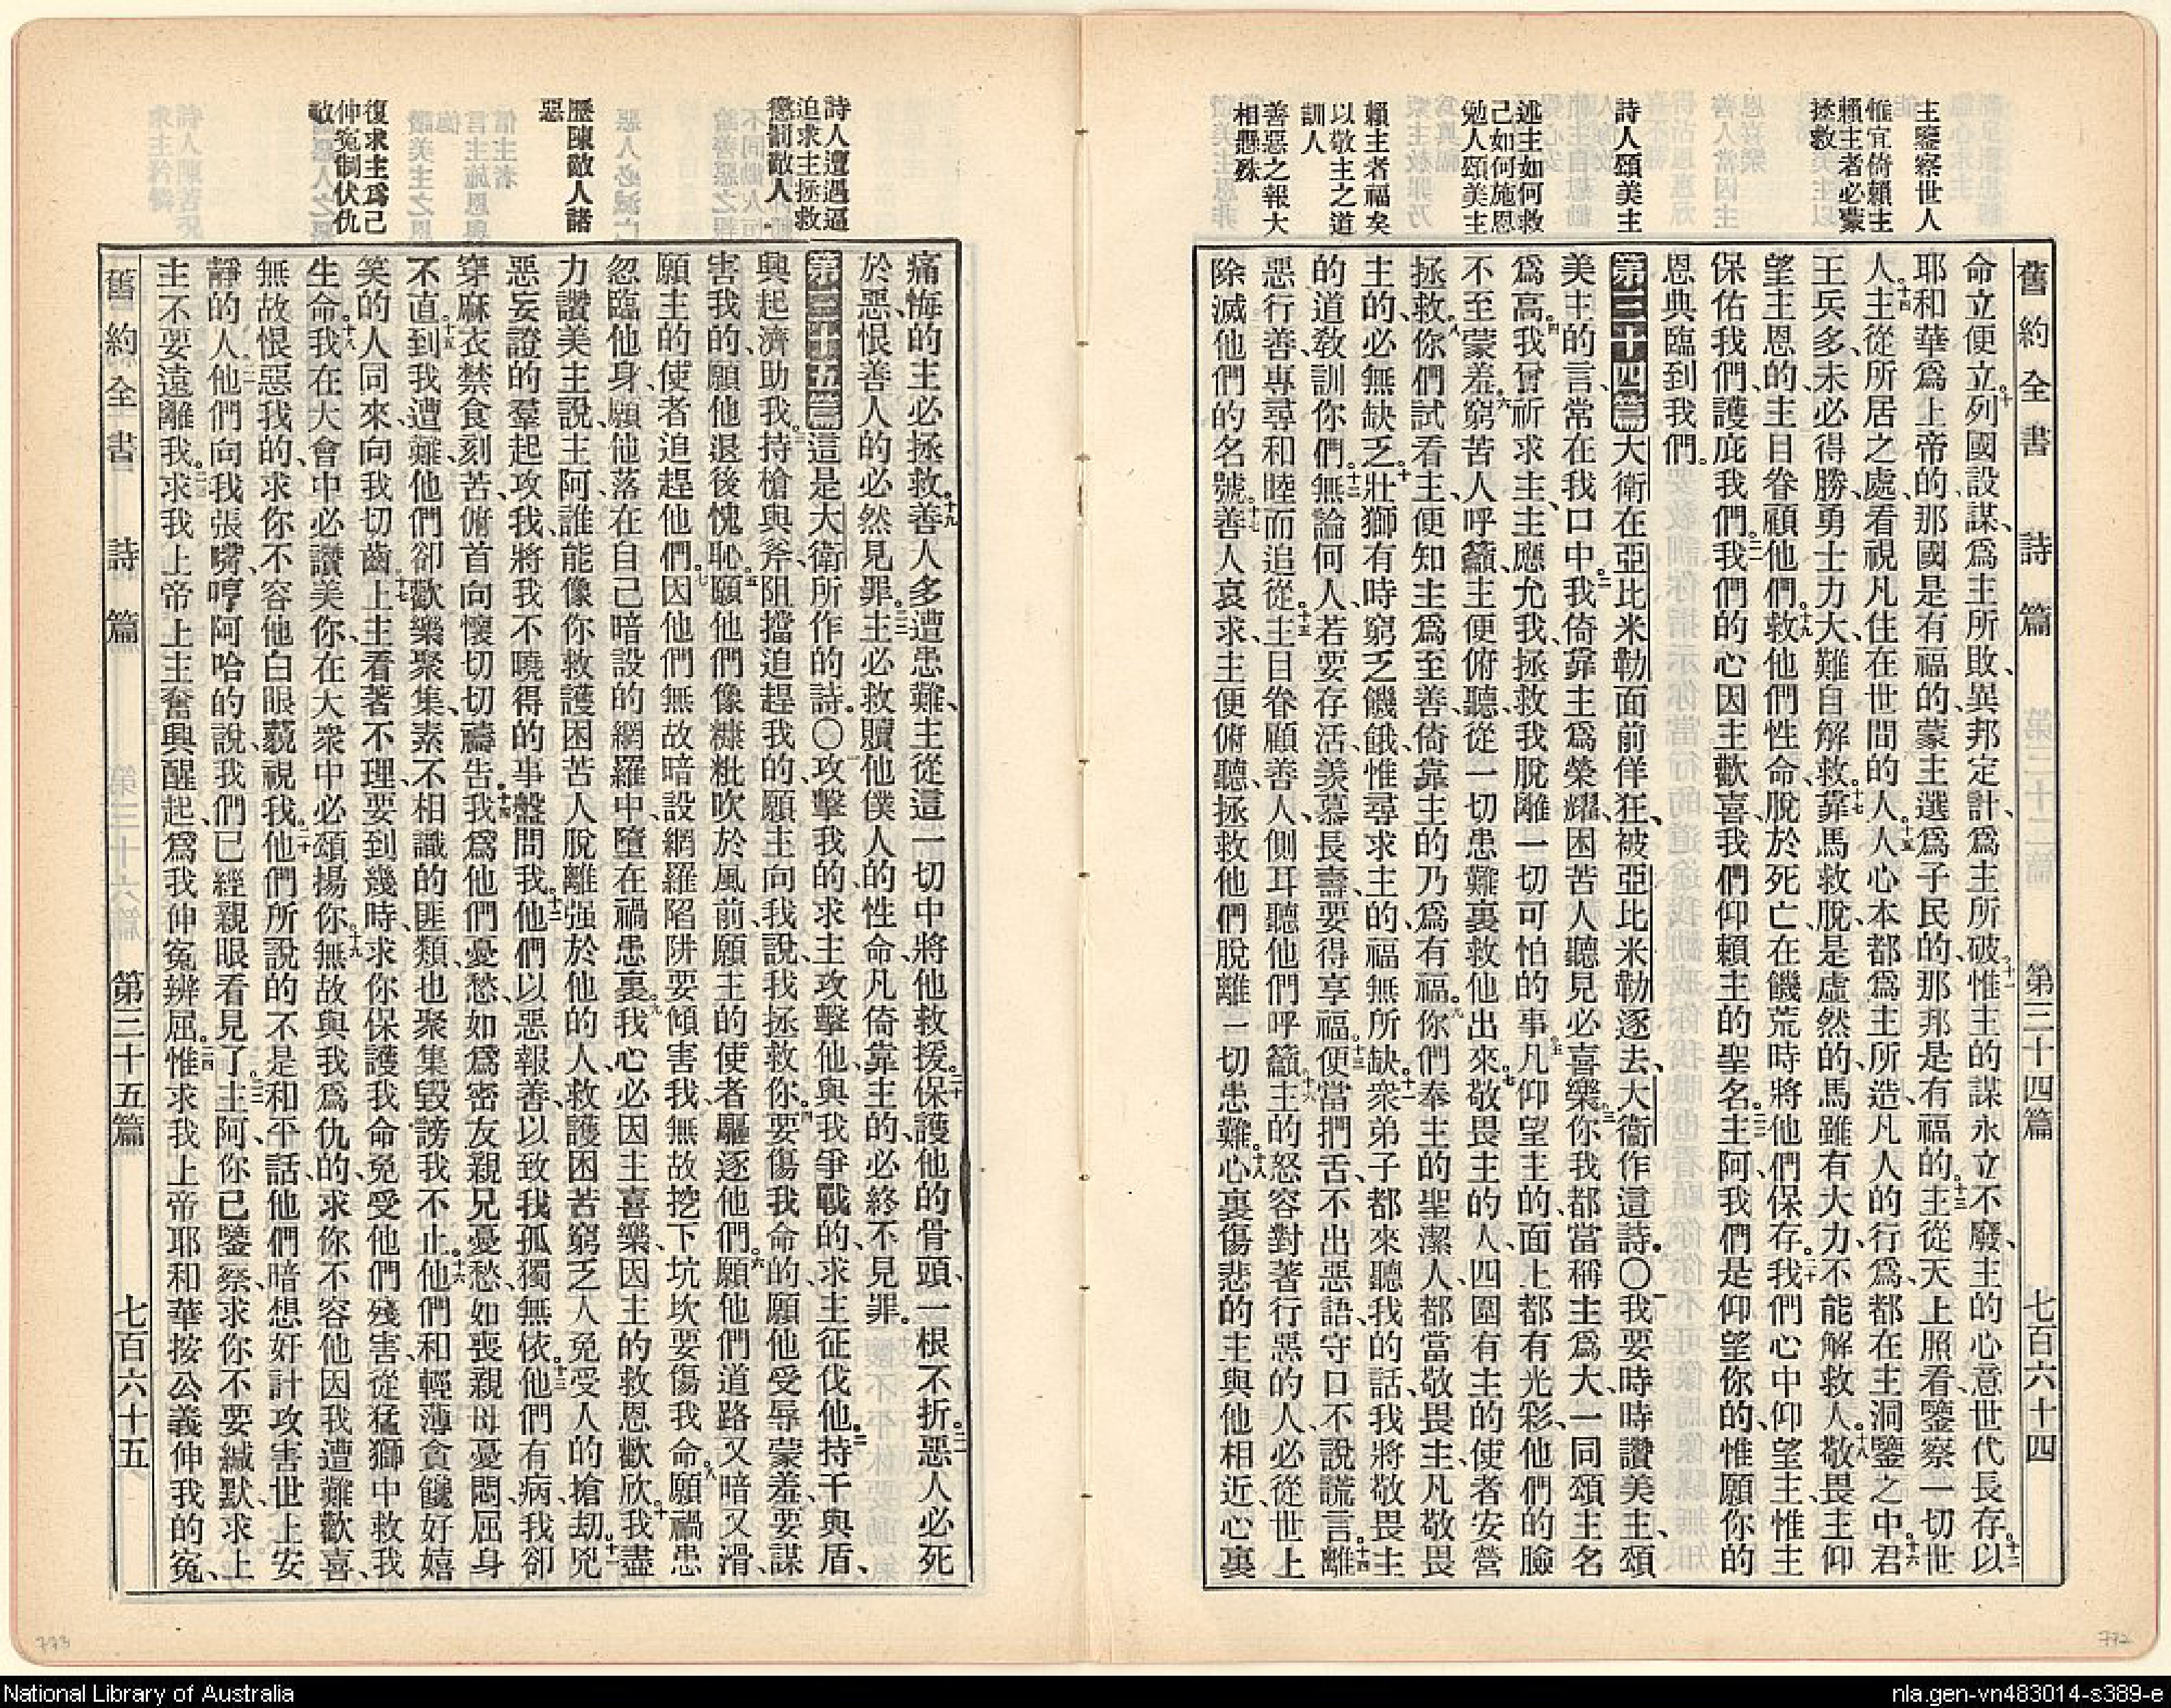 主鑒察世人
惟宜倚賴主
賴主者必蒙
拯救
詩人頌美主
述主如何救
己如何施恩
勉人頌美主
賴主者福矣
以敬主之道
訓人
善惡之報大
相懸殊
舊約全書 詩篇 第三十四篇 七百六十四
命立便立。十列國設謀、爲主所敗、異邦定計、爲主所破。十一惟主的謀永立不廢、主的心意世代長存。十二以
耶和華爲上帝的、那國是有福的、蒙主選爲子民的、那邦是有福的。十三主從天上照看、鑒察一切世
人。十四主從所居之處、看視凡住在世間的人。十五人心本都爲主所造、凡人的行爲、都在主洞鑒之中。十六君
王兵多、未必得勝、勇士力大、難自解救。十七靠馬救脫、是虛然的、馬雖有大力、不能解救人。十八敬畏主仰
望主恩的、主目眷顧他們。十九救他們性命、脫於死亡、在饑荒時將他們保存。二十我們心中仰望主、惟主
保佑我們、護庇我們。二一我們的心因主歡喜、我們仰賴主的聖名。二二主阿、我們是仰望你的、惟願你的
恩典臨到我們。
第三十四篇 大衛在亞比米勒面前佯狂、被亞比米勒逐去、大衞作這詩。〇一我要時時讚美主、頌
美主的言、常在我口中。二我倚靠主爲榮耀、困苦人聽見必喜樂。三你我都當稱主爲大、一同頌主名
爲高。四我曾祈求主、主應允我、拯救我脫離一切可怕的事。五凡仰望主的、面上都有光彩、他們的臉
不至蒙羞。六窮苦人呼籲、主便俯聽、從一切患難裏救他出來。七敬畏主的人、四圍有主的使者安營
拯救。八你們試看主、便知主爲至善、倚靠主的、乃爲有福。九你們奉主的聖潔人、都當敬畏主、凡敬畏
主的、必無缺乏。十壯獅有時窮乏饑餓、惟尋求主的、福無所缺。十一衆弟子都來聽我的話、我將敬畏主
的道教訓你們。十二無論何人、若要存活、羨慕長壽、要得享福。十三便當捫舌、不出惡語、守口不說謊言。十四離
惡行善、專尋和睦而追從。十五主目眷顧善人、側耳聽他們呼籲。十六主的怒容對著行惡的人、必從世上
除滅他們的名號。十七善人哀求、主便俯聽、拯救他們脫離一切患難。十八心裏傷悲的、主與他相近、心裏
詩人遭遇逼
迫求主拯救
懲罰敵人
歷陳敵人諸
惡
復求主爲己
伸冤制伏仇
敵
痛悔的、主必拯救。十九善人多遭患難、主從這一切中將他救援。二十保護他的骨頭、一根不折。二一惡人必死
於惡、恨善人的、必然見罪。二二主必救贖他僕人的性命、凡倚靠主的、必終不見罪。
第三十五篇 這是大衛所作的詩。〇一攻擊我的、求主攻擊他、與我爭戰的、求主征伐他。二持干與盾、
興起濟助我。三持槍與斧、阻擋追趕我的、願主向我說、我拯救你。四要傷我命的、願他受辱蒙羞、要謀
害我的、願他退後愧恥。五願他們像糠粃吹於風前、願主的使者驅逐他們。六願他們道路又暗又滑、
願主的使者追趕他們。七因他們無故暗設網羅陷阱要傾害我、無故挖下坑坎要傷我命。八願禍患
忽臨他身、願他落在自己暗設的網羅中、墮在禍患裏。九我心必因主喜樂、因主的救恩歡欣。十我盡
力讚美主說、主阿、誰能像你救護困苦人脫離强於他的人、救護困苦窮乏人免受人的搶刼。十一兇
惡妄證的羣起攻我、將我不曉得的事盤問我。十二他們以惡報善、以致我孤獨無依。十三他們有病、我卻
穿麻衣、禁食刻苦、俯首向懷切切禱告。十四我爲他們憂愁、如爲密友親兄憂愁、如喪親母憂悶、屈身
不直。十五到我遭難、他們卻歡樂聚集、素不相識的匪類也聚集毀謗我不止。十六他們和輕薄貪饞好嬉
笑的人同來、向我切齒。十七主看著不理、要到幾時、求你保護我命、免受他們殘害、從猛獅中救我
生命。十八我在大會中必讚美你、在大衆中必頌揚你。十九無故與我爲仇的、求你不容他因我遭難歡喜、
無故恨惡我的、求你不容他白眼藐視我。二十他們所說的不是和平話、他們暗想奸計攻害世上安
靜的人。二一他們向我張嘴、哼阿哈的說、我們已經親眼看見了。二二主阿、你已鑒察、求你不要緘默、求上
主不要遠離我。二三求我上帝上主奮興醒起、爲我伸冤辨屈。二四惟求我上帝耶和華按公義伸我的冤、
舊約全書 詩篇 第三十五篇 七百六十五
773
772
National Library of Australia
nla.gen-vn483014-s389-e